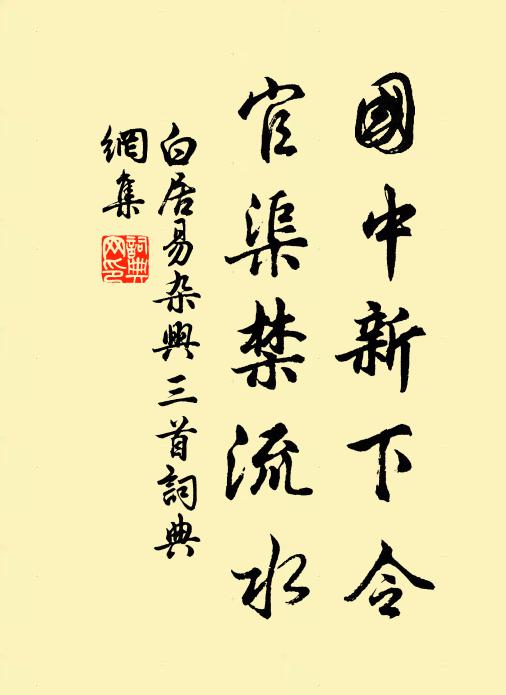 國中新下令
官渠禁流水
白居易杂興三首詞典
網集
詞典
网印